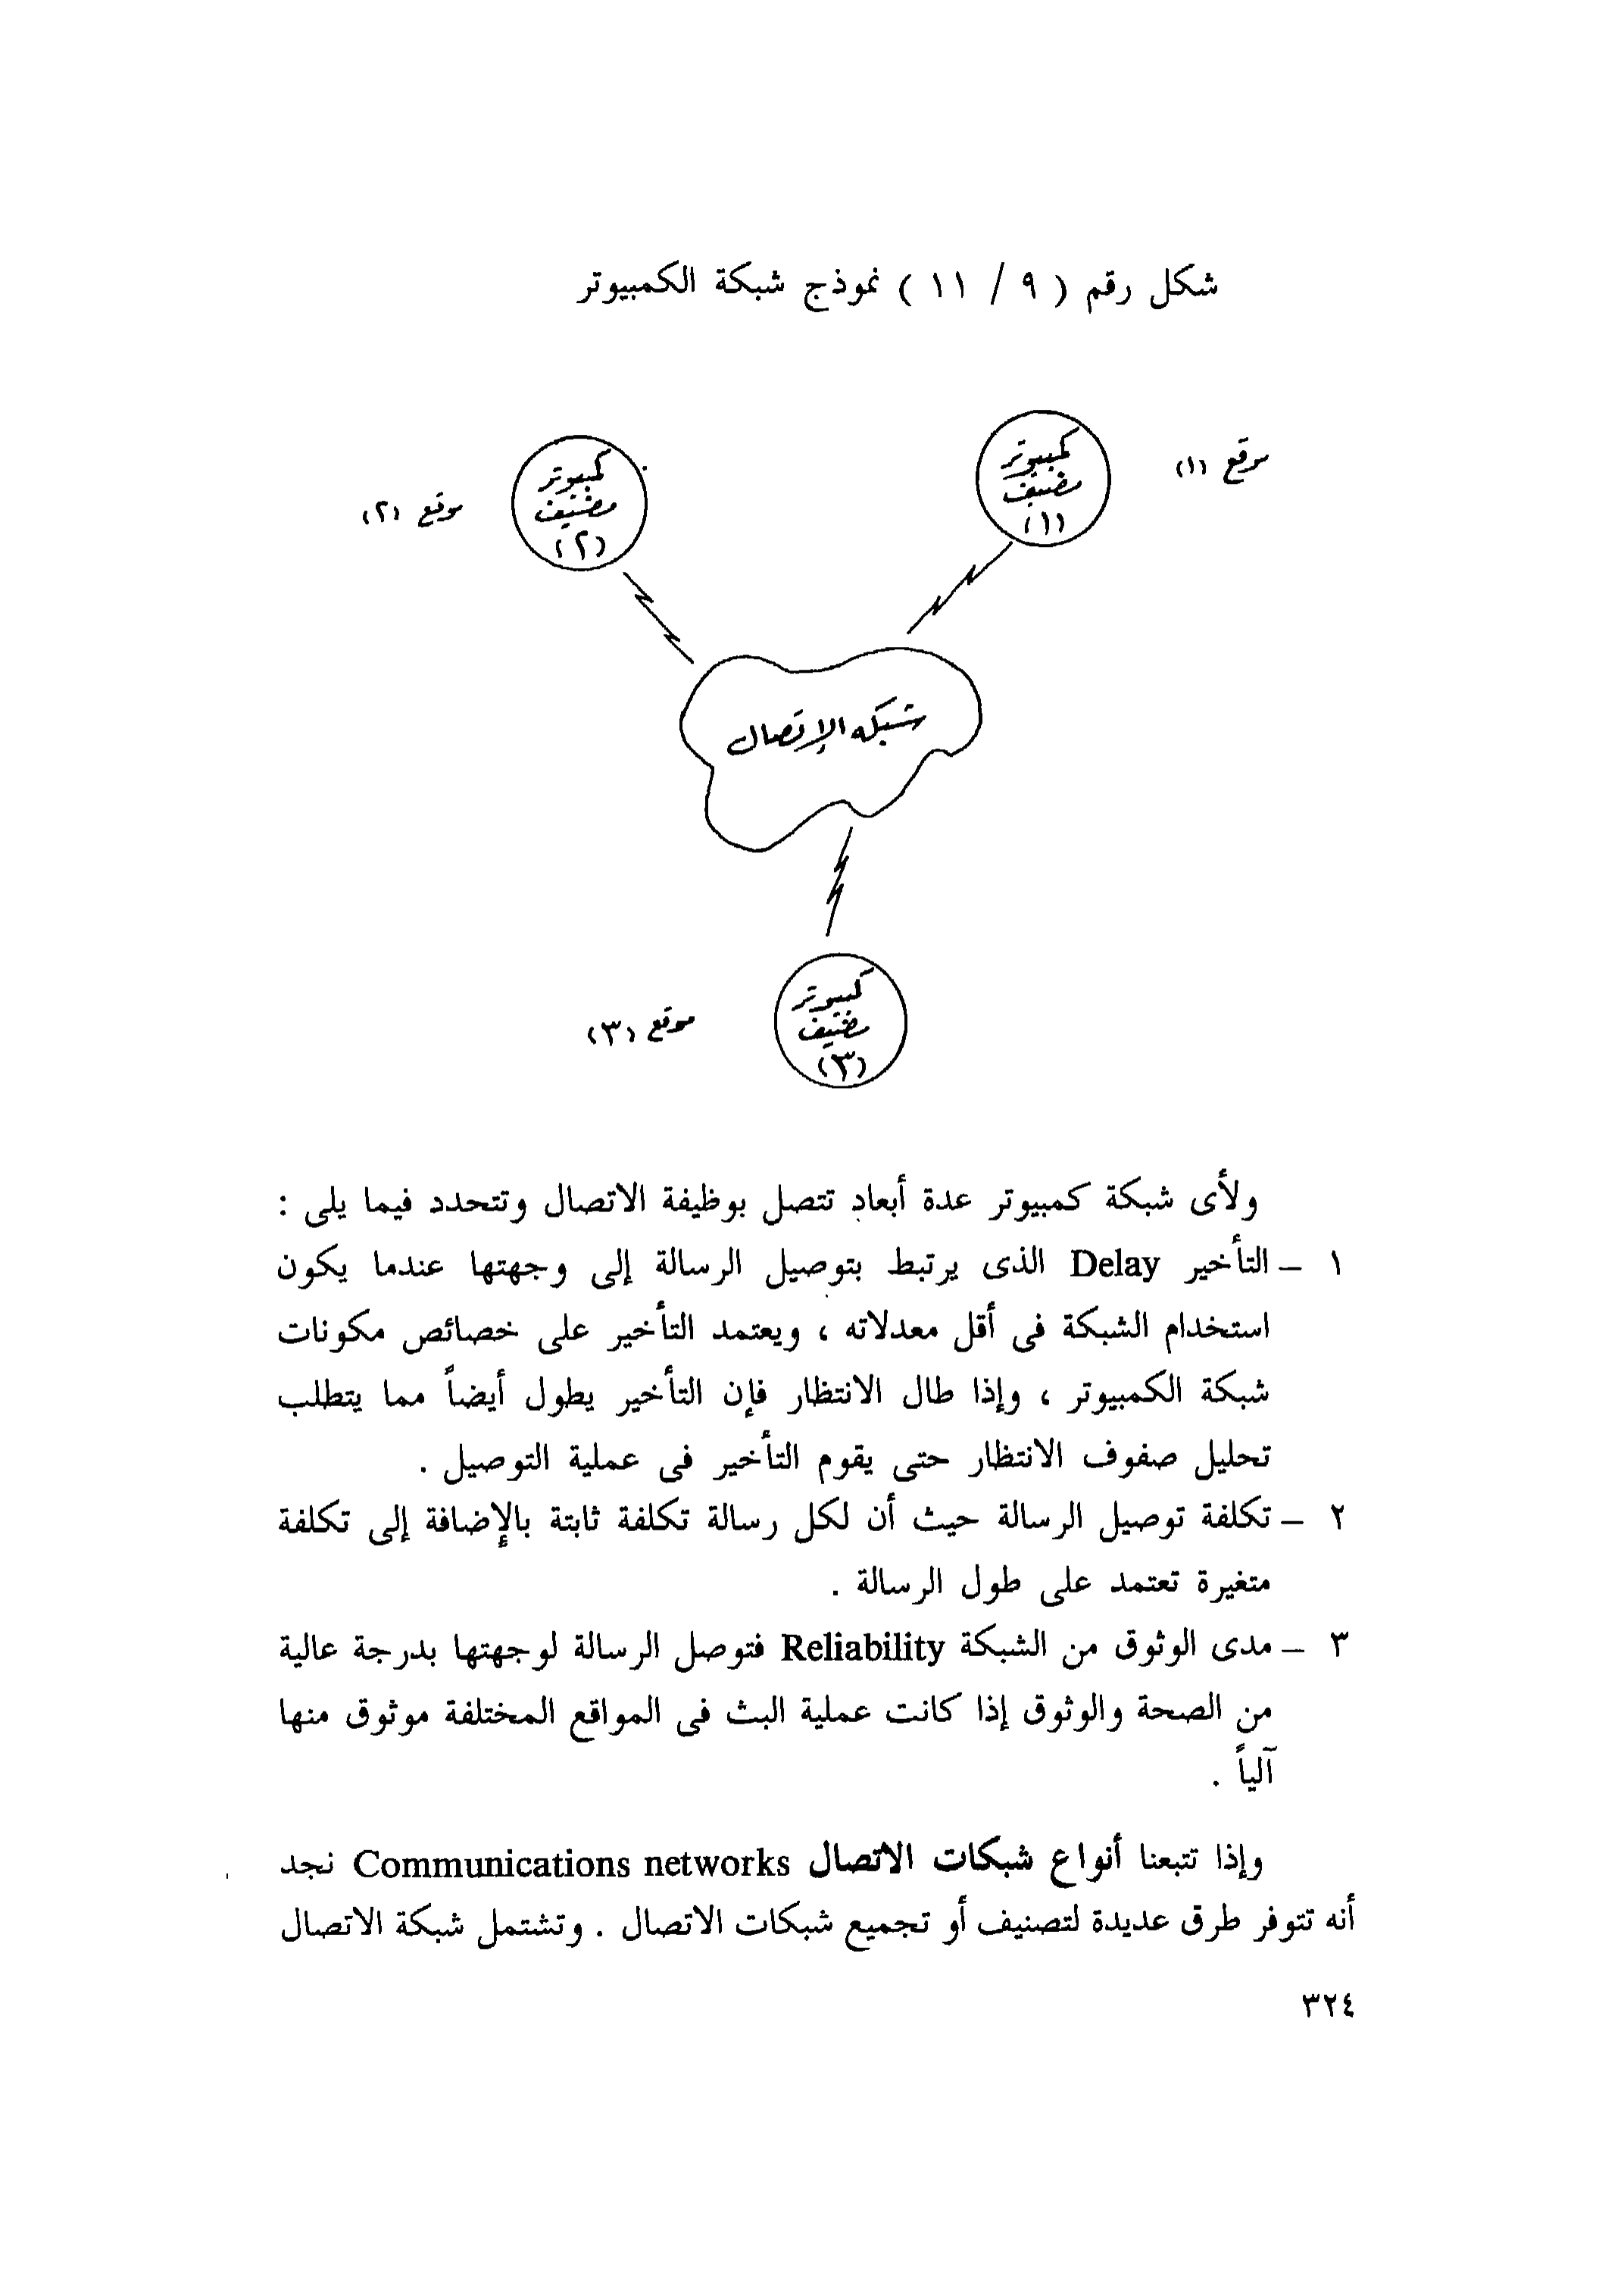 شكل رقم ( ٩ / ١١ ) نموذج شبكة الكمبيوتر
كمبيوتر
مضيف
(١)
موقع (١)
كمبيوتر
مضيف
(٢)
موقع (٢)
شبكه الإتصال
كمبيوتر
مضيف
(٣)
موقع (٣)
ولأى شبكة كمبيوتر عدة أبعاد تتصل بوظيفة الاتصال وتتحدد فيما يلى :
١ – التأخير Delay الذى يرتبط بتوصيل الرسالة إلى وجهتها عندما يكون
استخدام الشبكة فى أقل معدلاته ، ويعتمد التأخير على خصائص مكونات
شبكة الكمبيوتر ، وإذا طال الانتظار فإن التأخير يطول أيضاً مما يتطلب
تحليل صفوف الانتظار حتى يقوم التأخير فى عملية التوصيل .
٢ – تكلفة توصيل الرسالة حيث أن لكل رسالة تكلفة ثابتة بالإضافة إلى تكلفة
متغيرة تعتمد على طول الرسالة .
٣ – مدى الوثوق من الشبكة Reliability فتوصل الرسالة لوجهتها بدرجة عالية
من الصحة والوثوق إذا كانت عملية البث فى المواقع المختلفة موثوق منها
آلياً .
وإذا تتبعنا أنواع شبكات الاتصال Communications networks نجد
أنه تتوفر طرق عديدة لتصنيف أو تجميع شبكات الاتصال . وتشتمل شبكة الاتصال
٣٢٤